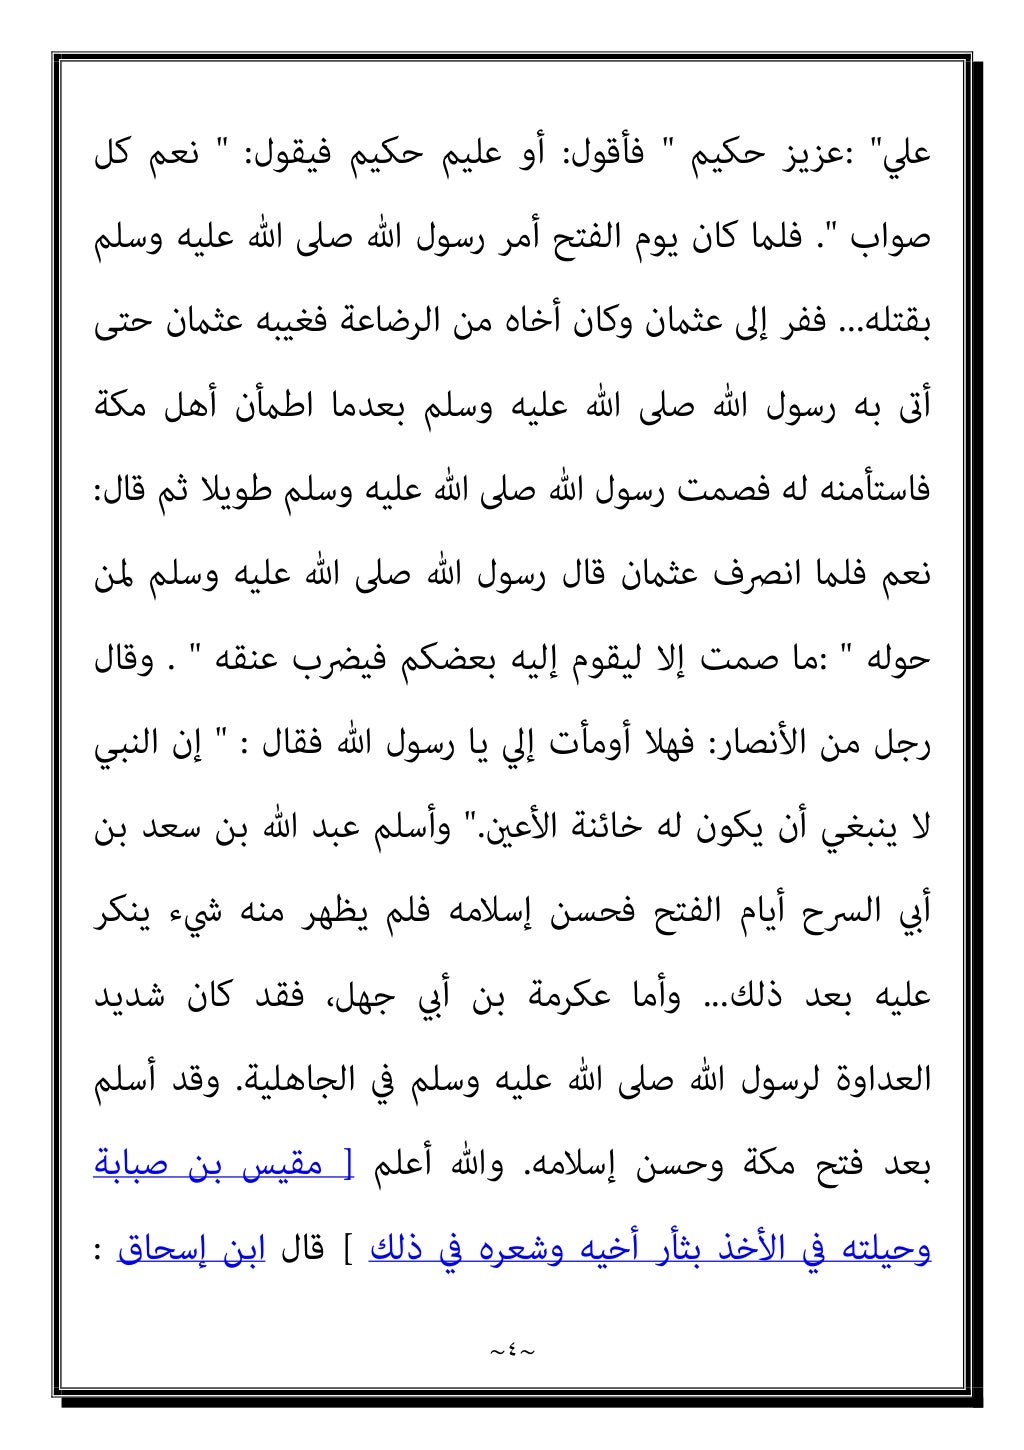 علي" :عزيز حكيم " فأقول: أو عليم حكيم فيقول: " نعم كل
صواب ". فلما كان يوم الفتح أمر رسول الله صلى الله عليه وسلم
بقتله... ففر إلى عثمان وكان أخاه من الرضاعة فغيبه عثمان حتى
أتى به رسول الله صلى الله عليه وسلم بعدما اطمأن أهل مكة
فاستأمنه له فصمت رسول الله صلى الله عليه وسلم طويلا ثم قال:
نعم فلما انصرف عثمان قال رسول الله صلى الله عليه وسلم لمن
حوله " :ما صمت إلا ليقوم إليه بعضكم فيضرب عنقه " . وقال
رجل من الأنصار: فهلا أومأت إلي يا رسول الله فقال : " إن النبي
لا ينبغي أن يكون له خائنة الأعين." وأسلم عبد الله بن سعد بن
أبي السرح أيام الفتح فحسن إسلامه فلم يظهر منه شيء ينكر
عليه بعد ذلك... وأما عكرمة بن أبي جهل، فقد كان شديد
العداوة لرسول الله صلى الله عليه وسلم في الجاهلية. وقد أسلم
بعد فتح مكة وحسن إسلامه. والله أعلم [ مقيس بن صبابة
وحيلته في الأخذ بثأر أخيه وشعره في ذلك ] قال ابن إسحاق :
~٤~